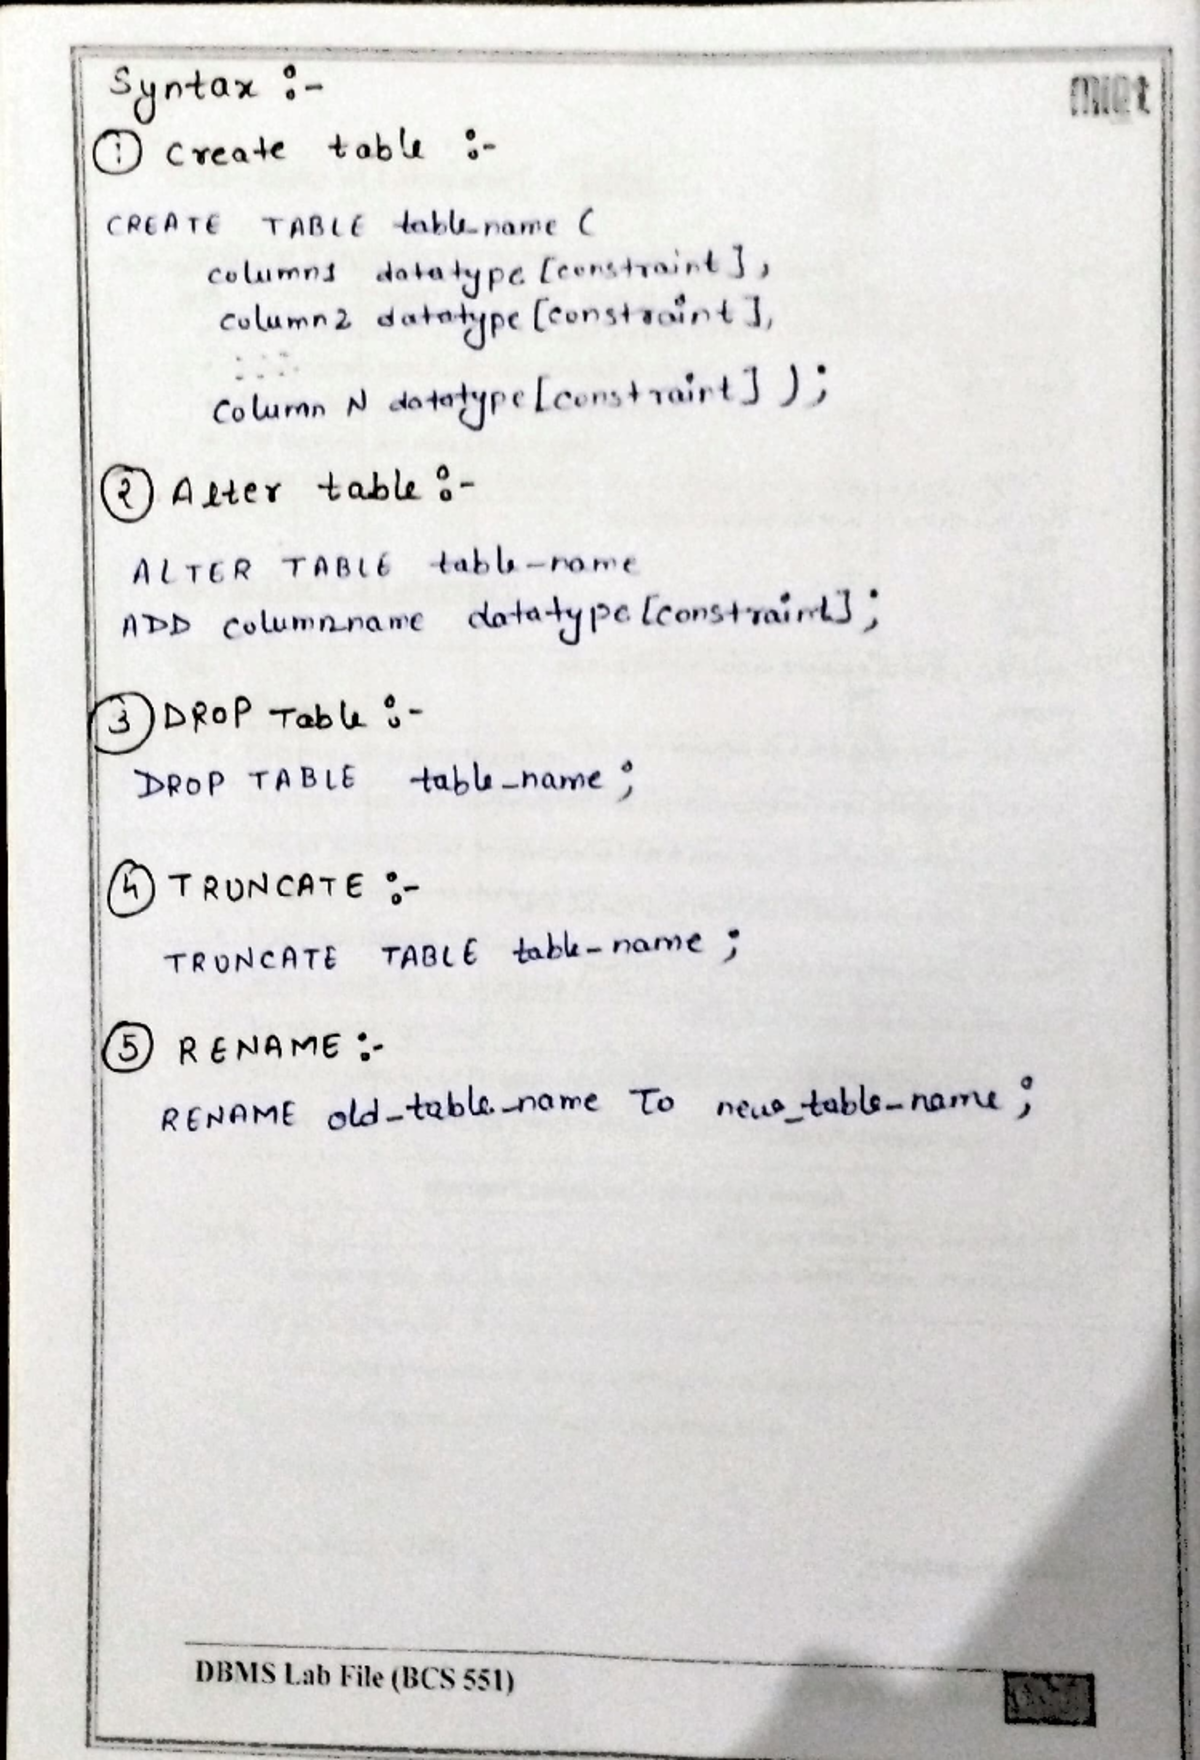 Syntax :-
miet
① Create table :-
CREATE TABLE table_name (
column1 datatype [constraint],
column2 datatype [constraint],
: : :
Column N datatype [constraint] ) ;
② Alter table :-
ALTER TABLE table-name
ADD column_name datatype [constraint] ;
③ DROP Table :-
DROP TABLE table_name ;
④ TRUNCATE :-
TRUNCATE TABLE table-name ;
⑤ RENAME :-
RENAME old_table_name To new_table-name ;
DBMS Lab File (BCS 551)